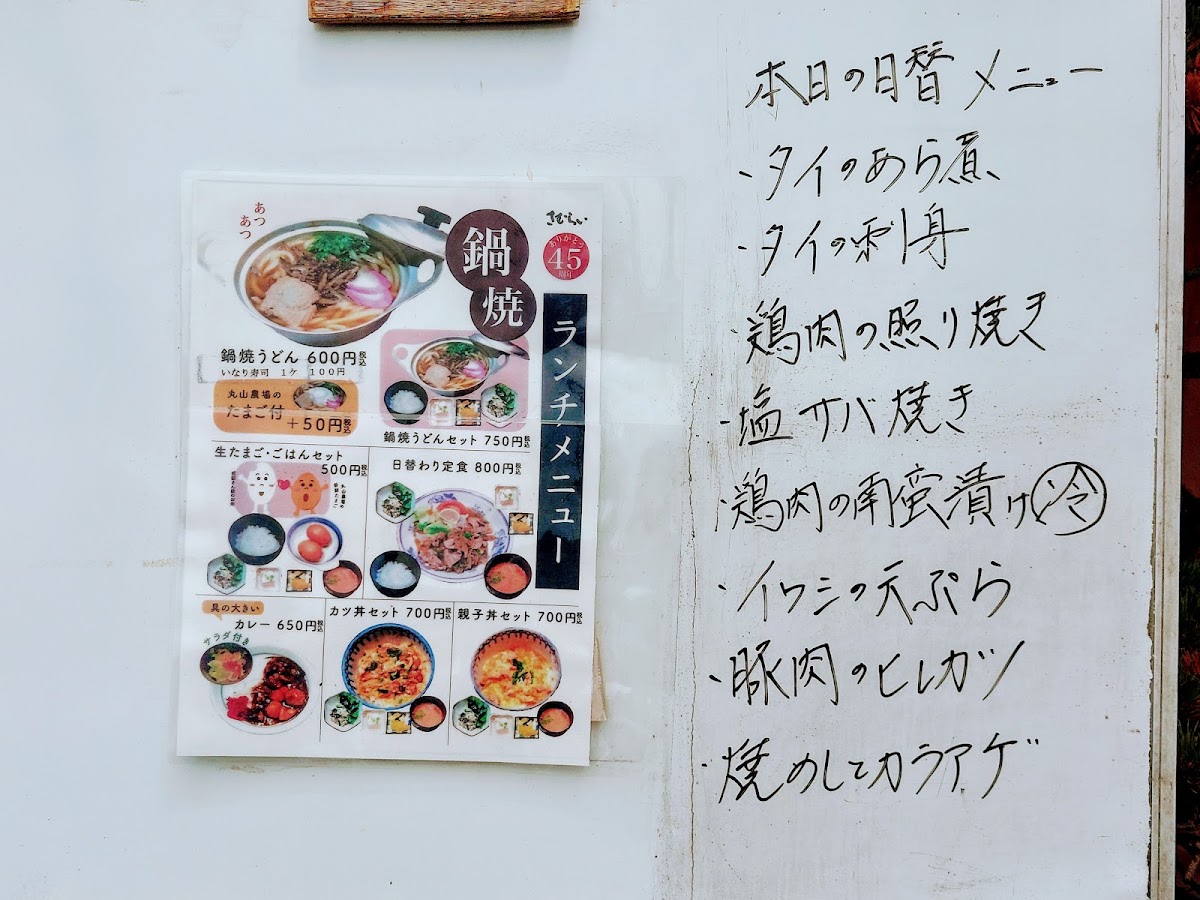 あつ
あつ
鍋
焼
さむらい
ありがとう
45
周年
ランチメニュー
鍋焼うどん 600円税込
いなり寿司 1ケ 100円
丸山農場の
たまご付
+50円税込
鍋焼うどんセット 750円税込
生たまご・ごはんセット
500円税込
日替わり定食 800円税込
具の大きい
カレー 650円税込
サラダ付き
カツ丼セット 700円税込
親子丼セット 700円税込
本日の日替メニュー
・タイのあら煮
・タイの刺身
・鶏肉の照り焼き
・塩サバ焼き
・鶏肉の南蛮漬け冷
・イワシの天ぷら
・豚肉のヒレカツ
・焼めしとカラアゲ